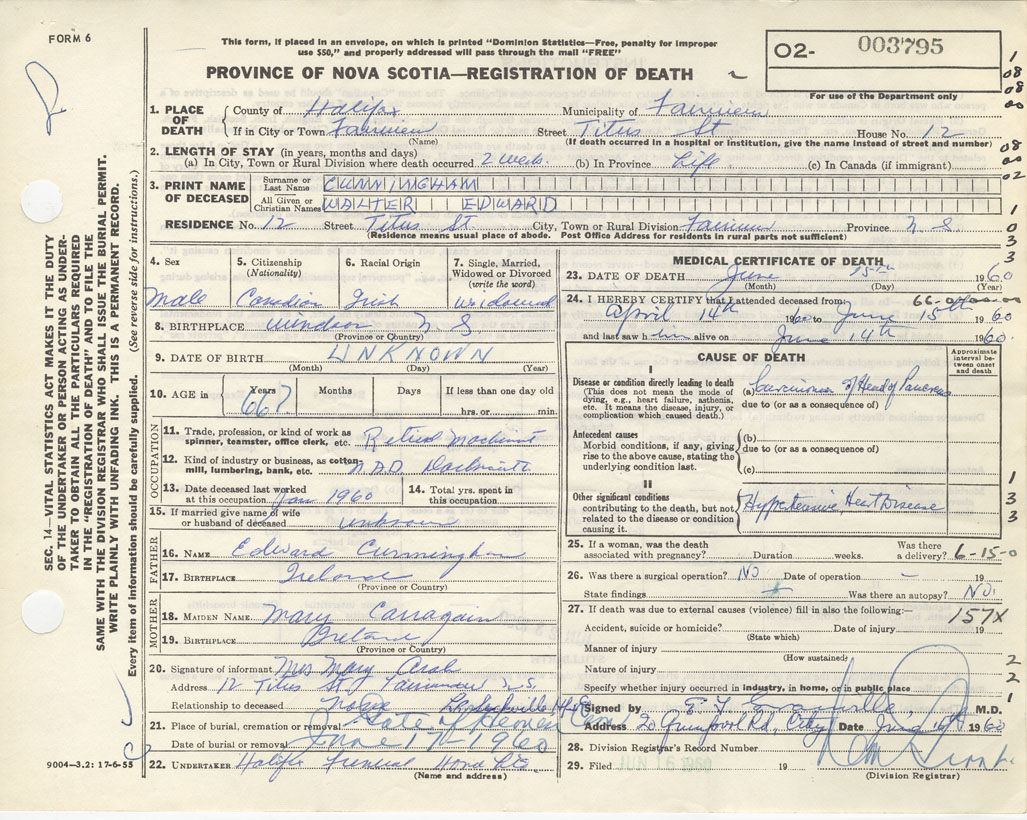 FORM 6
This form, if placed in an envelope, on which is printed "Dominion Statistics—Free, penalty for improper
use $50," and properly addressed will pass through the mail "FREE"
O2- 003795
For use of the Department only
PROVINCE OF NOVA SCOTIA—REGISTRATION OF DEATH
1. PLACE OF DEATH County of Halifax Municipality of Fairview
If in City or Town Fairview Street Titus St House No. 12
(Name) (If death occurred in a hospital or institution, give the name instead of street and number)
2. LENGTH OF STAY (in years, months and days)
(a) In City, Town or Rural Division where death occurred 2 weeks (b) In Province Life (c) In Canada (if immigrant)
3. PRINT NAME OF DECEASED Surname or Last Name CUNNINGHAM
All Given or Christian Names WALTER EDWARD
RESIDENCE No. 12 Street Titus St City, Town or Rural Division Fairview Province N.S.
(Residence means usual place of abode. Post Office Address for residents in rural parts not sufficient)
4. Sex Male
5. Citizenship (Nationality) Canadian
6. Racial Origin Irish
7. Single, Married, Widowed or Divorced (write the word) Widowed
8. BIRTHPLACE Windsor N S
(Province or Country)
9. DATE OF BIRTH UNKNOWN
(Month) (Day) (Year)
10. AGE in Years 66? Months Days If less than one day old
hrs. or min.
OCCUPATION
11. Trade, profession, or kind of work as
spinner, teamster, office clerk, etc. Retired Machinist
12. Kind of industry or business, as cotton-
mill, lumbering, bank, etc. NAD Dartmouth
13. Date deceased last worked
at this occupation Jan 1960
14. Total yrs. spent in
this occupation
15. If married give name of wife
or husband of deceased unknown
FATHER
16. NAME Edward Cunningham
17. BIRTHPLACE Ireland
(Province or Country)
MOTHER
18. MAIDEN NAME Mary
19. BIRTHPLACE Ireland
(Province or Country)
20. Signature of informant Mrs Mary
Address 12 Titus St Fairview N.S.
Relationship to deceased
21. Place of burial, cremation or removal Gate of Heaven
Date of burial or removal June 17-1960
22. UNDERTAKER Halifax Funeral Home Ltd
(Name and address)
9004—3.2: 17-6-55
MEDICAL CERTIFICATE OF DEATH
23. DATE OF DEATH June 15th 1960
(Month) (Day) (Year)
24. I HEREBY CERTIFY that I attended deceased from:
April 14th 1960 to June 15th 1960
and last saw him alive on June 14th 1960.
CAUSE OF DEATH
Approximate interval between onset and death
I
Disease or condition directly leading to death
(This does not mean the mode of dying, e.g., heart failure, asthenia, etc. It means the disease, injury, or complication which caused death.)
(a) Carcinoma of Head of Pancreas
due to (or as a consequence of)
Antecedent causes
Morbid conditions, if any, giving rise to the above cause, stating the underlying condition last.
(b)
due to (or as a consequence of)
(c)
II
Other significant conditions
contributing to the death, but not related to the disease or condition causing it.
Hypertensive Heart Disease
25. If a woman, was the death
associated with pregnancy? Duration weeks. Was there a delivery?
6-15-0
26. Was there a surgical operation? NO Date of operation - 19
State findings Was there an autopsy? NO.
27. If death was due to external causes (violence) fill in also the following:—
157X
Accident, suicide or homicide? Date of injury 19
(State which)
Manner of injury
(How sustained)
Nature of injury
Specify whether injury occurred in industry, in home, or in public place
Signed by M.D.
Address Rd, City Date June 16th 1960
28. Division Registrar's Record Number
29. Filed JUN 16 1960 19
(Division Registrar)
SEC. 14—VITAL STATISTICS ACT MAKES IT THE DUTY
OF THE UNDERTAKER OR PERSON ACTING AS UNDER-
TAKER TO OBTAIN ALL THE PARTICULARS REQUIRED
IN THE "REGISTRATION OF DEATH" AND TO FILE THE
SAME WITH THE DIVISION REGISTRAR WHO SHALL ISSUE THE BURIAL PERMIT.
WRITE PLAINLY WITH UNFADING INK. THIS IS A PERMANENT RECORD.
Every item of information should be carefully supplied. (See reverse side for instructions.)